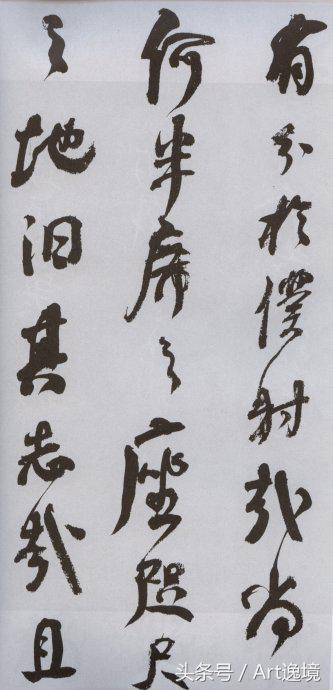 有分於僕射哉尚
何半席之座咫尺
之地汨其志哉且
头条号 / Art逸境